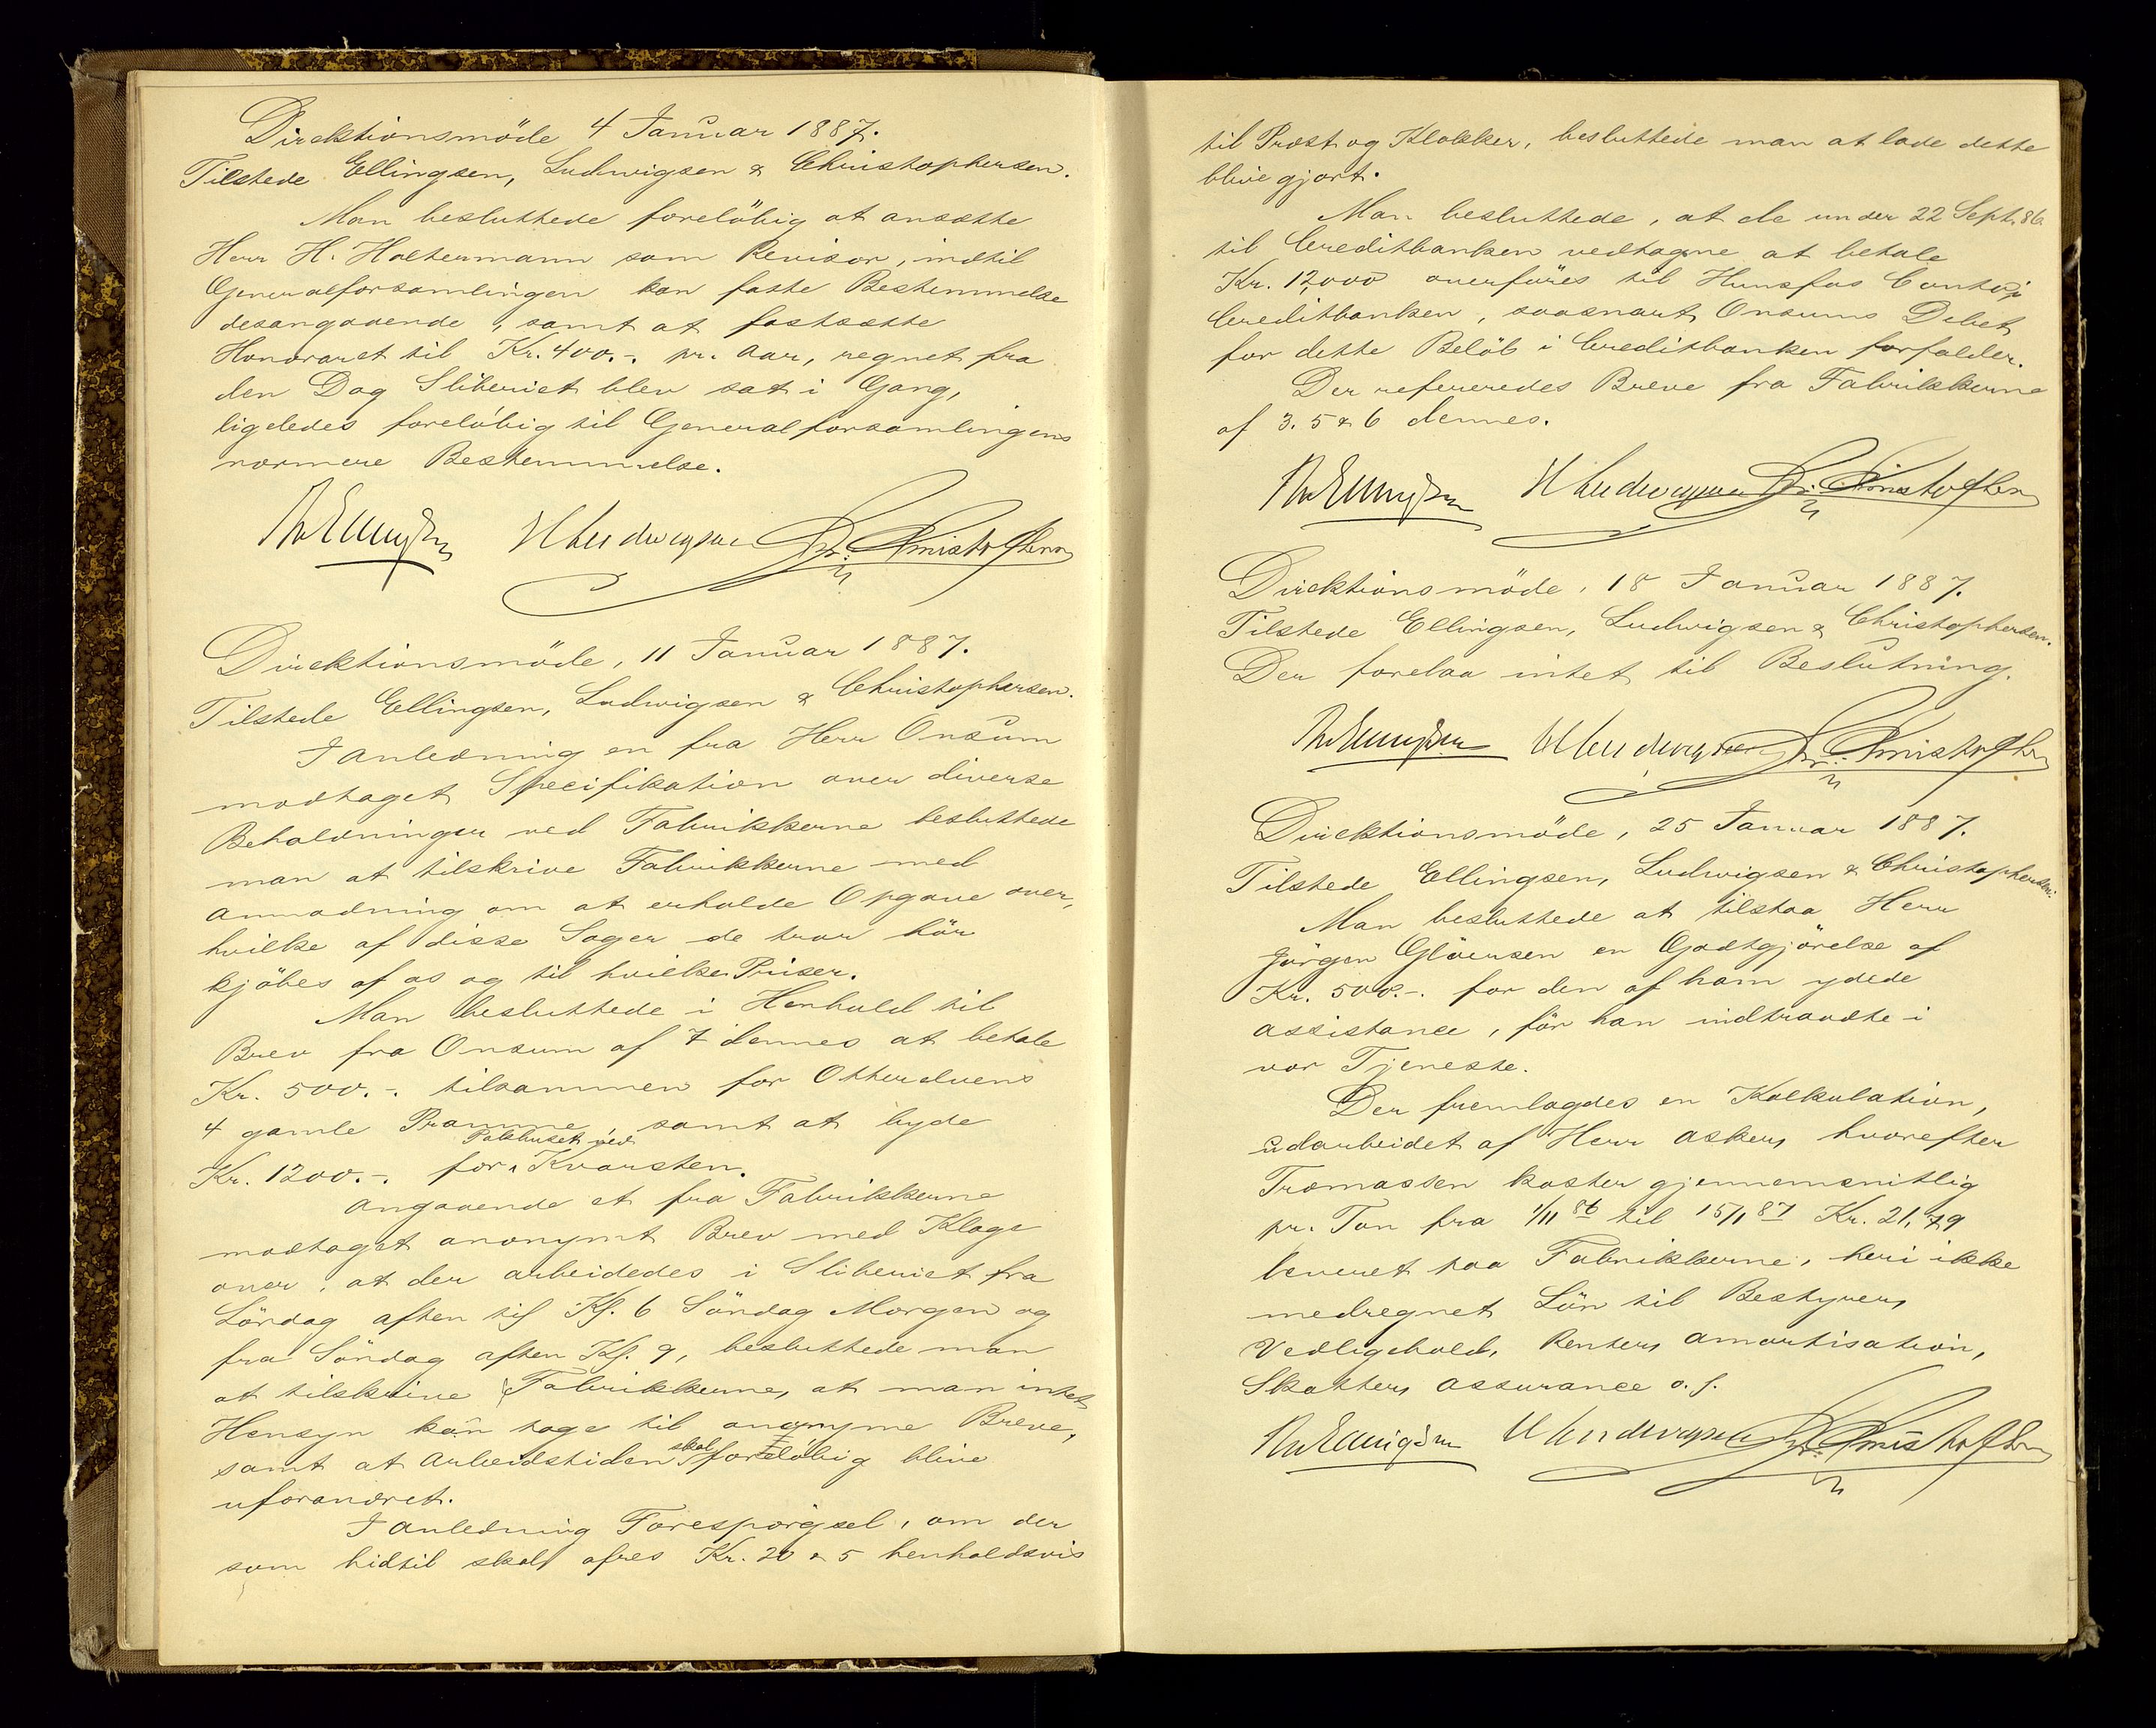 Direktionsmöde 4 Januar 1887.
Tilstede Ellingsen, Ludwigsen & Christophersen.
Man besluttede foreløbig at ansætte
Herr H. Holtermann som Revisor, indtil
Generalforsamlingen kan fatte Bestemmelse
desangaaende, samt at fastsætte
Honoraret til Kr. 400.-. pr. Aar, regnet fra
den Dag Sliberiet blev sat i Gang,
ligeledes foreløbig til Generalforsamlingens
nærmere Bestemmelse.
ThrEllingsen HLudwigsen Chr. Christophersen
Direktionsmöde, 11 Januar 1887.
Tilstede Ellingsen, Ludwigsen & Christophersen.
I Anledning en fra Herr Onsum
modtaget Specifikation over diverse
Beholdninger ved Fabrikkerne besluttede
man at tilskrive Fabrikkerne med
Anmodning om at erholde Opgave over,
hvilke af disse Sager de tror bör
kjöbes af os og til hvilke Priser.
Man besluttede i Henhold til
Brev fra Onsum af 7 dennes at betale
Kr. 500.-. tilsammen for Otterelvens
4 gamle Pramme samt at byde
Kr. 1200.-. for Pakhuset ved Kvarsten.
Angaaende et fra Fabrikkerne
modtaget anonymt Brev med Klage
over, at der arbeidedes i Sliberiet fra
Lördag aften til Kl. 6 Söndag Morgen og
fra Söndag aften Kl. 9, besluttede man
at tilskrive Fabrikkerne, at man intet
Hensyn kan tage til anonyme Breve,
samt at Arbeidstiden skal foreløbig blive
uforandret.
I Anledning Forespörgsel, om der
som hidtil skal ofres Kr. 20 & 5 henholdsvis
til Præst og Klokker, besluttede man at lade dette
blive gjort.
Man besluttede, at de under 22 Sept. 86
til Creditbanken vedtagne at betale
Kr. 12,000 overföres til Hunsfos Conto i
Creditbanken, saasnart Onsums Debet
for dette Belöb i Creditbanken forfalder.
Der refereredes Breve fra Fabrikkerne
af 3. 5 & 6 dennes.
ThrEllingsen HLudwigsen Chr. Christophersen
Direktionsmöde, 18 Januar 1887.
Tilstede Ellingsen, Ludwigsen & Christophersen.
Der forelaa intet til Beslutning.
ThrEllingsen HLudwigsen Chr. Christophersen
Direktionsmöde, 25 Januar 1887.
Tilstede Ellingsen, Ludwigsen & Christophersen.
Man besluttede at tilstaa Herr
Jörgen Glöersen en Godtgjörelse af
Kr. 500.-. for den af ham ydede
Assistance, för han indtraadte i
vor Tjeneste.
Der fremlagdes en Kalkulation,
udarbeidet af Herr Asker, hvorefter
Træmassen koster gjennemsnitlig
pr. Ton fra 1/11 86 til 15/1 87 Kr. 21,79
leveret paa Fabrikkerne, heri ikke
medregnet Lön til Bestyrer,
Vedligehold, Renter, Amortisation,
Skatter, Assurance o. s.
ThrEllingsen HLudwigsen Chr. Christophersen